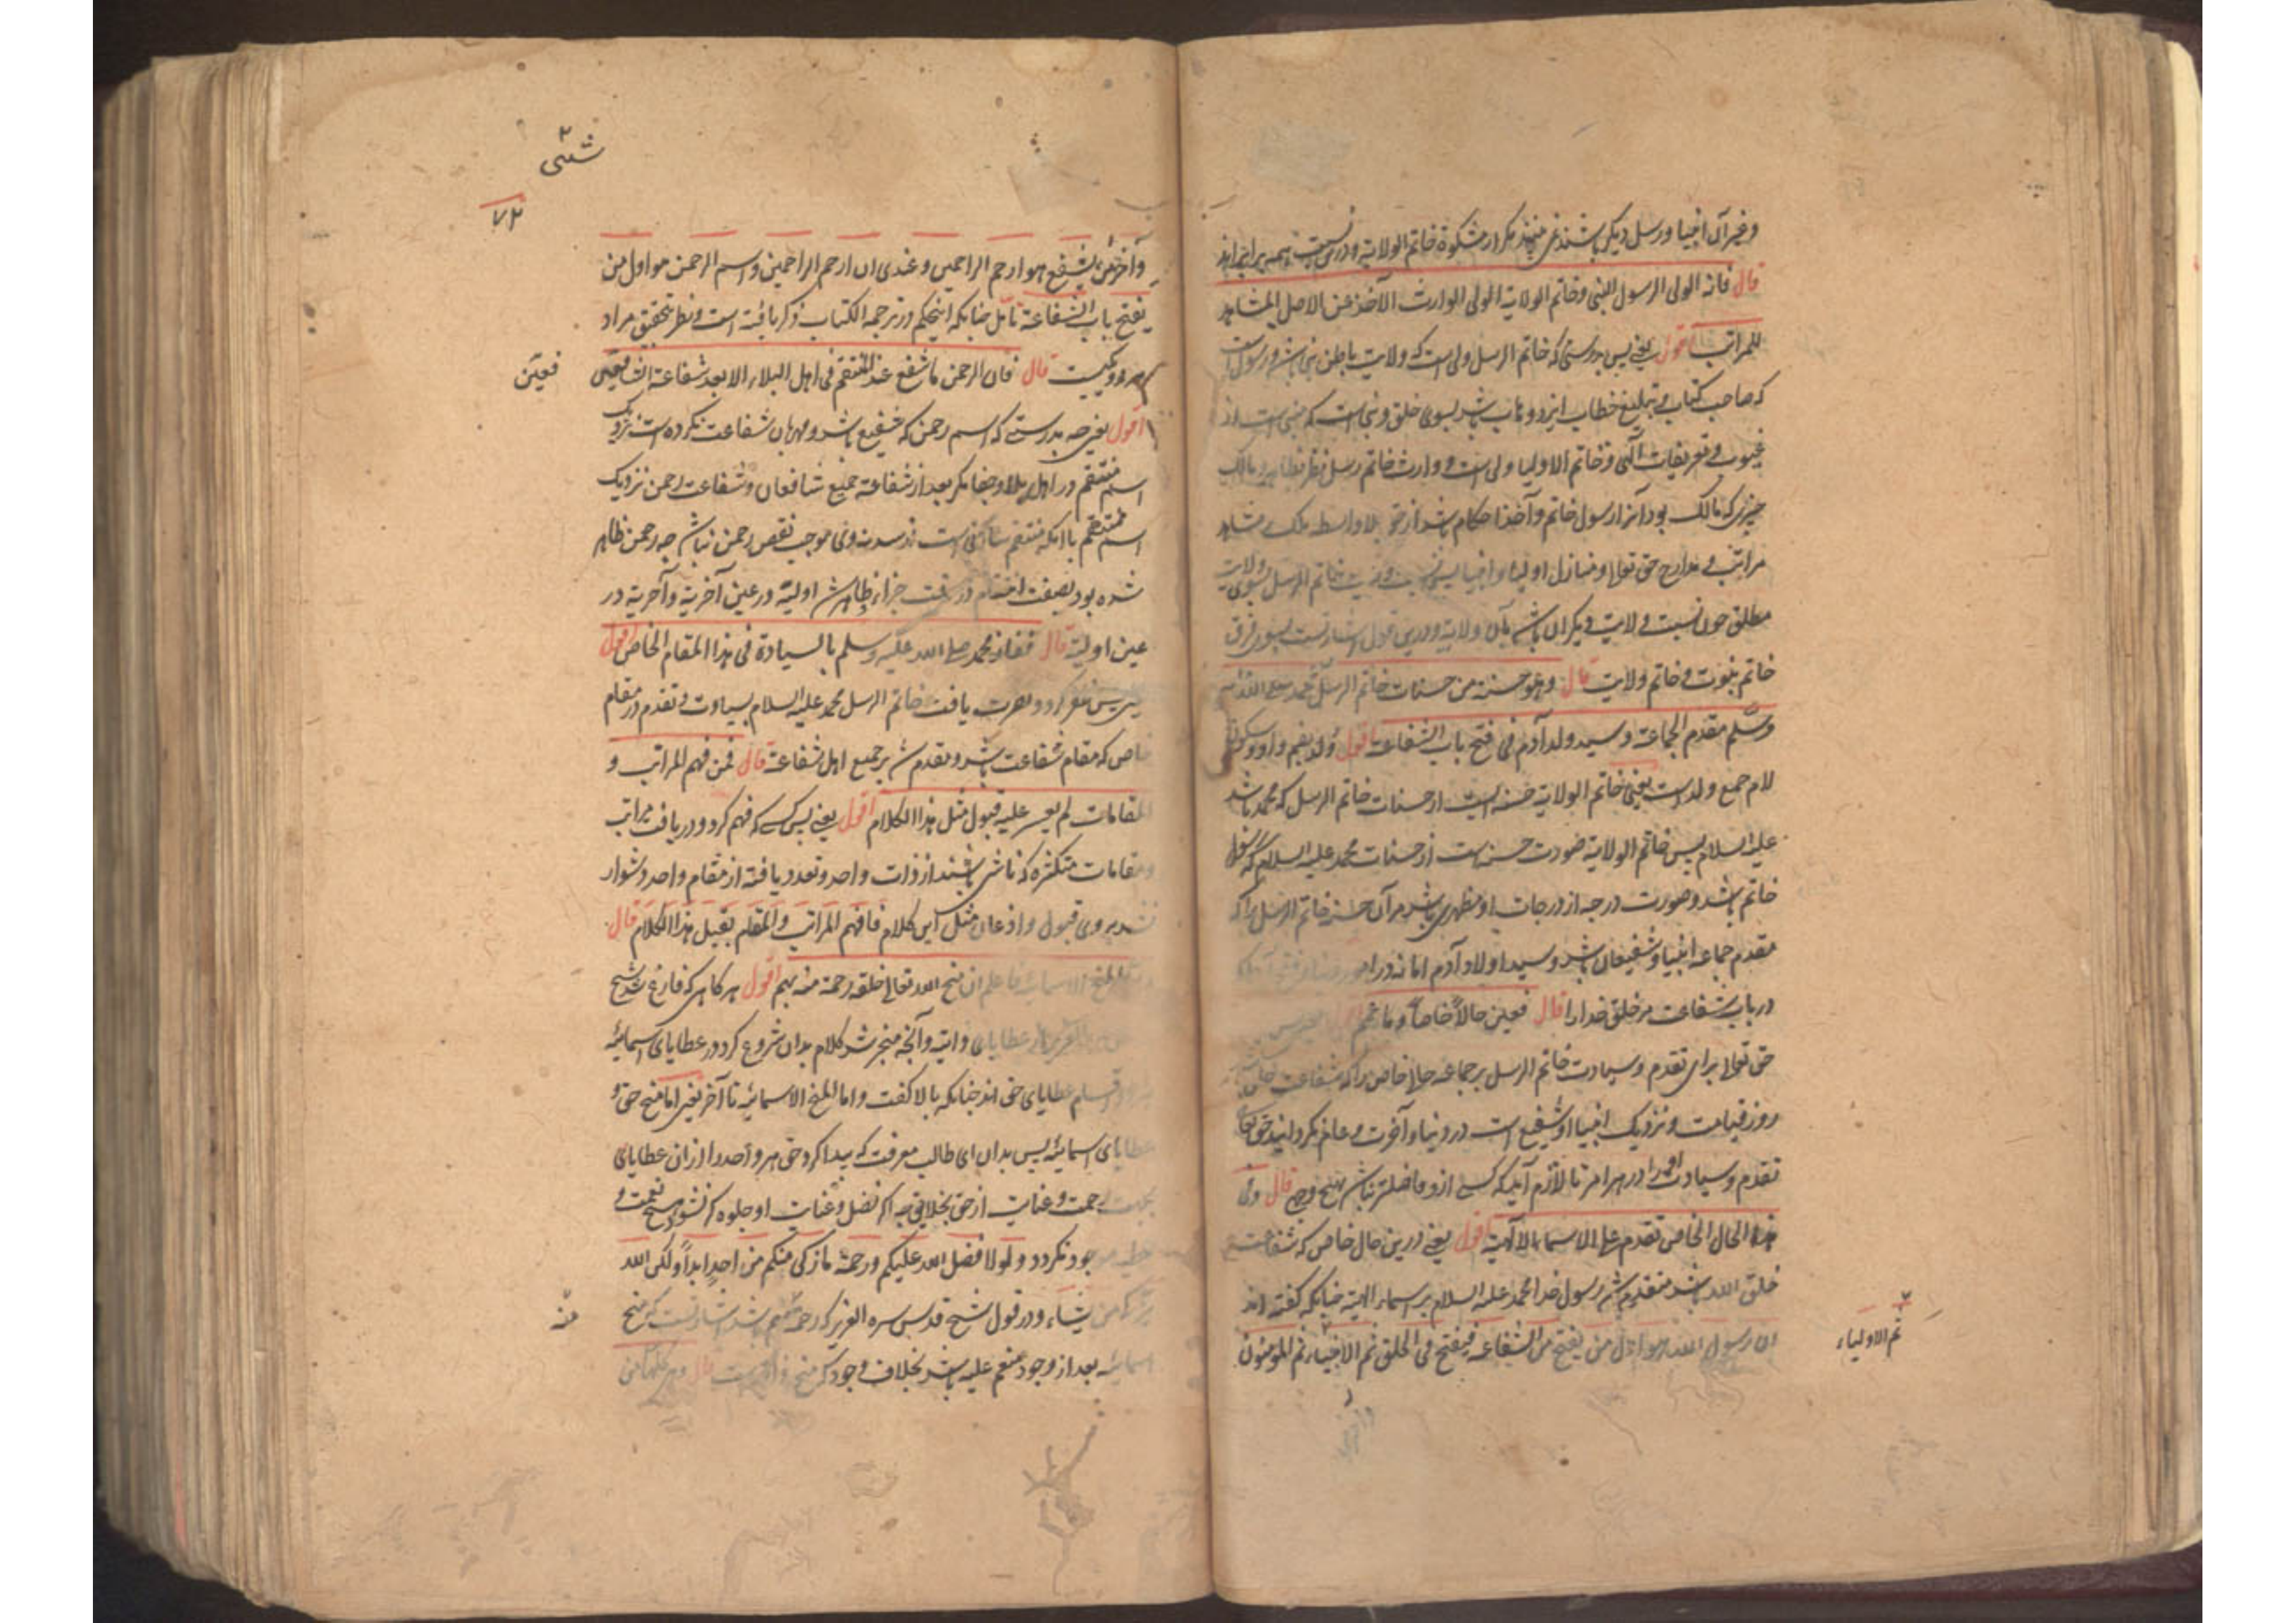 وغیر آن انبیا و رسل دیگر باشند نمی بینند مگر از مشکوة خاتم الولایة و درین نسبت همه برابر اند
قال فانه الولی الرسول النبی وخاتم الولایة الولی الوارث الآخذ عن الاصل المشاهد
للمراتب اقول یعنی پس بدرستی که خاتم الرسل ولی است که ولایت باطن نبی باشد و رسول است
که صاحب کتاب و تبلیغ خطاب ایزد وهاب باشد بسوی خلق و نبی است که منبی است از
غیوب و تعریفات الهی و خاتم الاولیا ولی است و وارث خاتم رسل مالک
چیزی که مالک بود آنرا رسول خاتم و آخذ احکام باشد از حق بلا واسطه ملک مشاهد
مراتب و مدارج حق تعالی و منازل اولیا و انبیا پس نسبت ولایت خاتم الرسل بسوی ولایت
مطلق چون نسبت ولایت دیگران باشد بآن ولایة و درین قول اشارتست بسوی فرق
خاتم نبوت و خاتم ولایت قال وهو حسنة من حسنات خاتم الرسل محمد صلی الله علیه
وسلم مقدم الجماعة وسید ولد آدم فی فتح باب الشفاعة اقول ولد بضم واو و سکون
لام جمع ولد است یعنی خاتم الولایة حسنه ایست از حسنات خاتم الرسل که محمد باشد
علیه السلام پس خاتم الولایة صورت حسنه است از حسنات محمد علیه السلام که رسول
خاتم باشد و صورت درجه از درجات او مظهری باشد مر آن حسنه خاتم الرسل را که
مقدم جماعه انبیا و شفیعان باشد و سید اولاد آدم اما نه در
در باب شفاعت مر خلق خدا را قال فعین حالا خاصا وما عمم
حق تعالی برای تقدم و سیادت خاتم الرسل بر جماعه حال خاص را که شفاعت خلق
روز قیامت و نزدیک انبیا و شفیع است در دنیا و آخرت و عام نگردانید حق تعالی
تقدم و سیادت او را در هر امر تا لازم آید که کسی ازو فاضلتر نباشد بهیچ وجه قال وفی
هذا الحال الخاص تقدم علی الاسماء الالهیة اقول یعنی درین حال خاص که شفاعت
خلق الله باشد متقدم شد رسول خدا محمد علیه السلام بر اسماء الهیة چنانکه گفته اند
ان رسول الله هو اول من یفتح من الشفاعة فیفتح فی الخلق ثم الانبیاء ثم المومنون
ثم الاولیاء
شتی
۷۲
وآخر من یشفع هو ارحم الراحمین وعندی ان ارحم الراحمین واسم الرحمن هو اول من
یفتح باب الشفاعة تأمل چنانکه اینحکم در ترجمة الکتاب ذکر یافته است و نظر تحقیق مراد
هر دو یکیست قال فان الرحمن ما شفع عند المنتقم فی اهل البلاء الا بعد شفاعة الشافعین
فعین
اقول یعنی چه بدرستی که اسم رحمن که شفیع باشد و مهربان شفاعت نکرده است نزدیک
اسم منتقم در اهل بلا و جفا مگر بعد از شفاعة جمیع شافعان و شفاعت رحمن نزدیک
اسم منتقم با آنکه منتقم موجب نقص رحمن نباشد چه رحمن ظاهر
شده بود بصفت جزا ظاهر شد اولیة در عین آخریة و آخریة در
عین اولیة قال ففاز محمد صلی الله علیه وسلم بالسیادة فی هذا المقام الخاص اقول
یعنی پس ظفر کرد و نصرت یافت خاتم الرسل محمد علیه السلام بسیادت و تقدم در مقام
خاص که مقام شفاعت باشد و مقدم شد بر جمیع اهل شفاعة قال فمن فهم المراتب و
المقامات لم یعسر علیه قبول مثل هذا الکلام اقول یعنی پس کسی که فهم کرد و دریافت مراتب
و مقامات متکثره که ناشی باشند از ذات واحد و تعدد یافته از مقام واحد دشوار
نشد بروی قبول و اذعان مثل این کلام فافهم المراتب والمقام بقبل هذا الکلام قال
واما المنح الاسمائیة فاعلم ان منح الله تعالی خلقه رحمة منه بهم اقول هرکاه که فارغ شد شیخ
از عطایای ذاتیه و آنچه منجر شد کلام بدان شروع کرد در عطایای اسمائیه
عطایای حق اند چنانکه بالا گفت واما المنح الاسمائیه تا آخر یعنی اما منح حق و
عطایای اسمائیه پس بدان ای طالب معرفت که پیدا کرد حق هر واحد را ازان عطایای
بجهت رحمت و عنایت از حق بخلایق چه اگر فضل و عنایت او جلوه گر نشود هیچ نعمت و
موجود نگردد ولولا فضل الله علیکم ورحمته ما زکی منکم من احد ابدا ولکن الله
یزکی من یشاء و در قول شیخ قدس سره العزیز که رحمة منه بهم باشد اشارتست که منح
منه
اسمائیه بعد از وجود منعم علیه باشد بخلاف وجود که منح ذاتی است قال